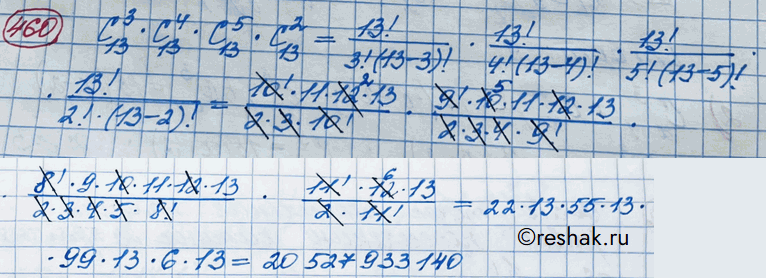 460 C³₁₃ · C⁴₁₃ · C⁵₁₃ · C²₁₃ = 13!/(3!(13-3)!) · 13!/(4!(13-4)!) · 13!/(5!(13-5)!) ·
· 13!/(2!·(13-2)!) = (10!·11·12²·13)/(2·3·10!) · (9!·10⁵·11·12·13)/(2·3·4·9!) ·
· (8!·9·10·11·12·13)/(2·3·4·5·8!) · (11!·12⁶·13)/(2·11!) = 22·13·55·13·
·99·13·6·13 = 20 527 933 140
©reshak.ru